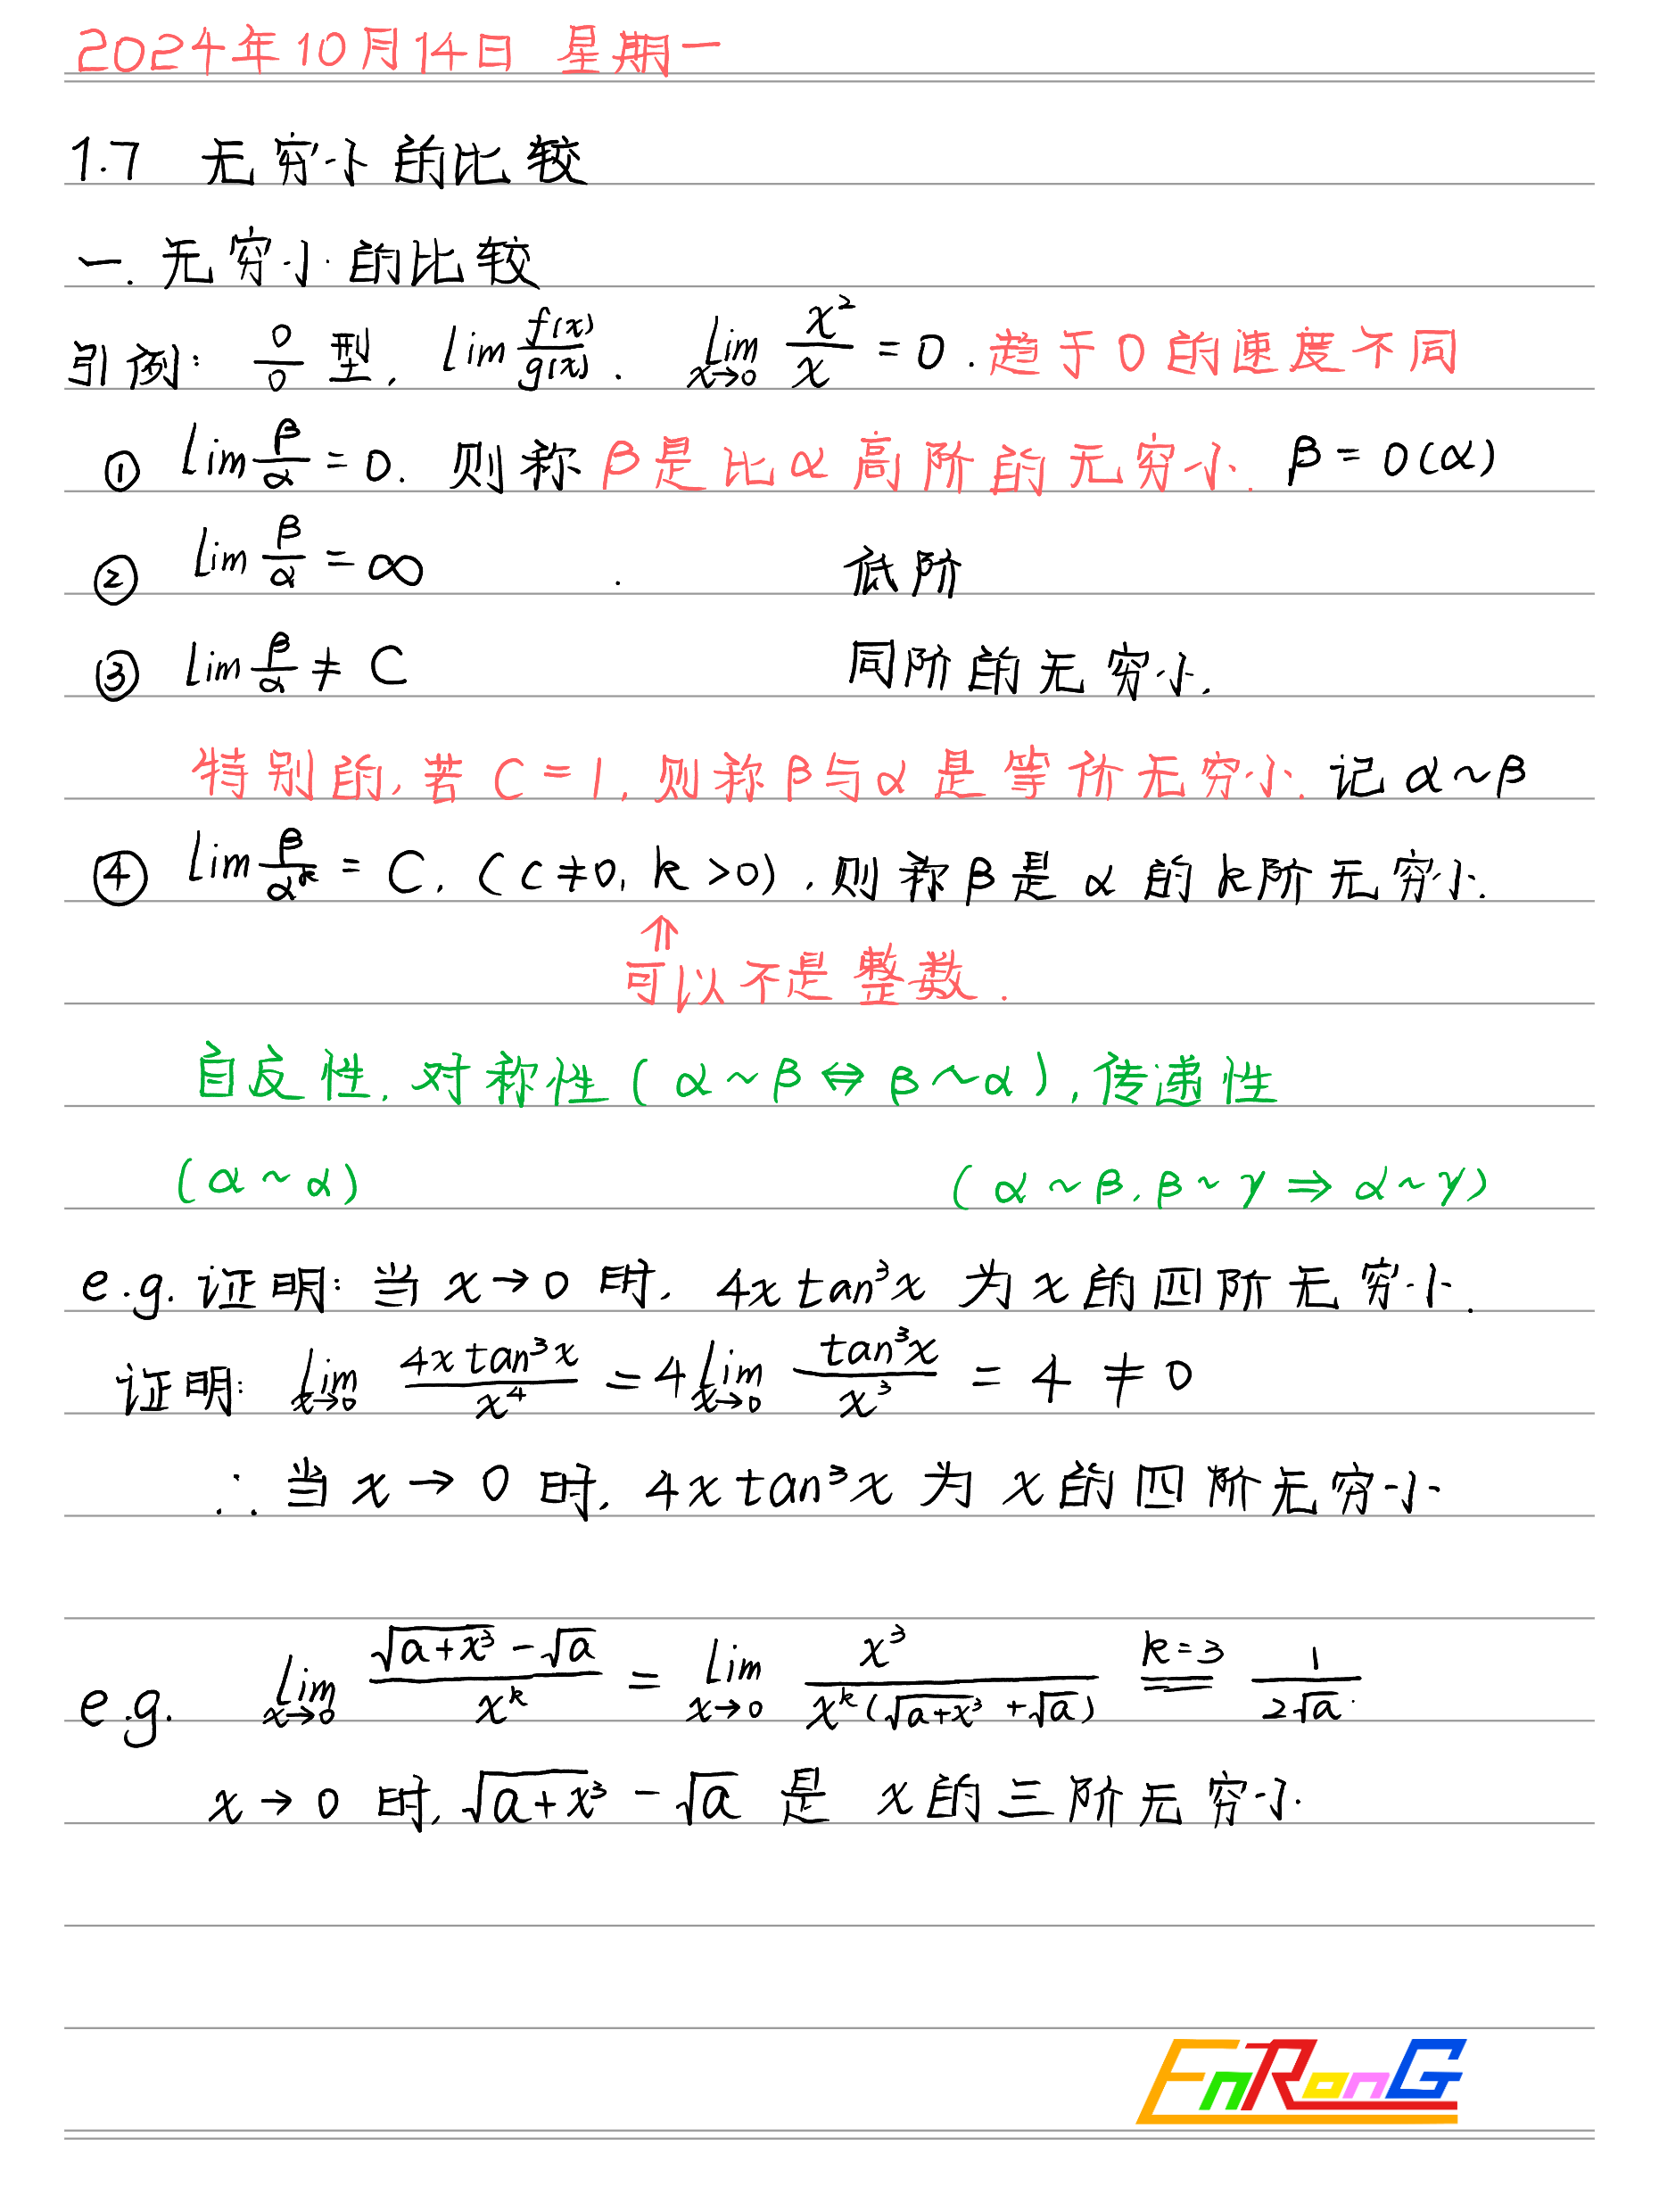 2024年10月14日 星期一
1.7 无穷小的比较
一. 无穷小的比较
引例: 0/0 型, lim f(x)/g(x) . lim x→0 x²/x = 0 . 趋于0的速度不同
① lim β/α = 0. 则称 β是比α高阶的无穷小. β = 0(α)
② lim β/α = ∞ . 低阶
③ lim β/α ≠ C 同阶的无穷小.
特别的, 若 C = 1, 则称β与α是等价无穷小. 记 α~β
④ lim β/αᵏ = C. (c≠0, k>0), 则称β是α的k阶无穷小.
↑
可以不是整数.
自反性, 对称性 (α~β⇔β~α), 传递性
(α~α) (α~β, β~γ ⇒ α~γ)
e.g. 证明: 当 x→0 时, 4x tan³x 为 x 的四阶无穷小.
证明: lim x→0 4x tan³x / x⁴ = 4 lim x→0 tan³x / x³ = 4 ≠ 0
∴ 当 x→0 时, 4x tan³x 为 x 的四阶无穷小
e.g. lim x→0 (√(a+x³) - √a) / xᵏ = lim x→0 x³ / (xᵏ(√(a+x³) + √a)) k=3 == 1 / (2√a) .
x→0 时, √(a+x³) - √a 是 x的三阶无穷小.
EnRonG